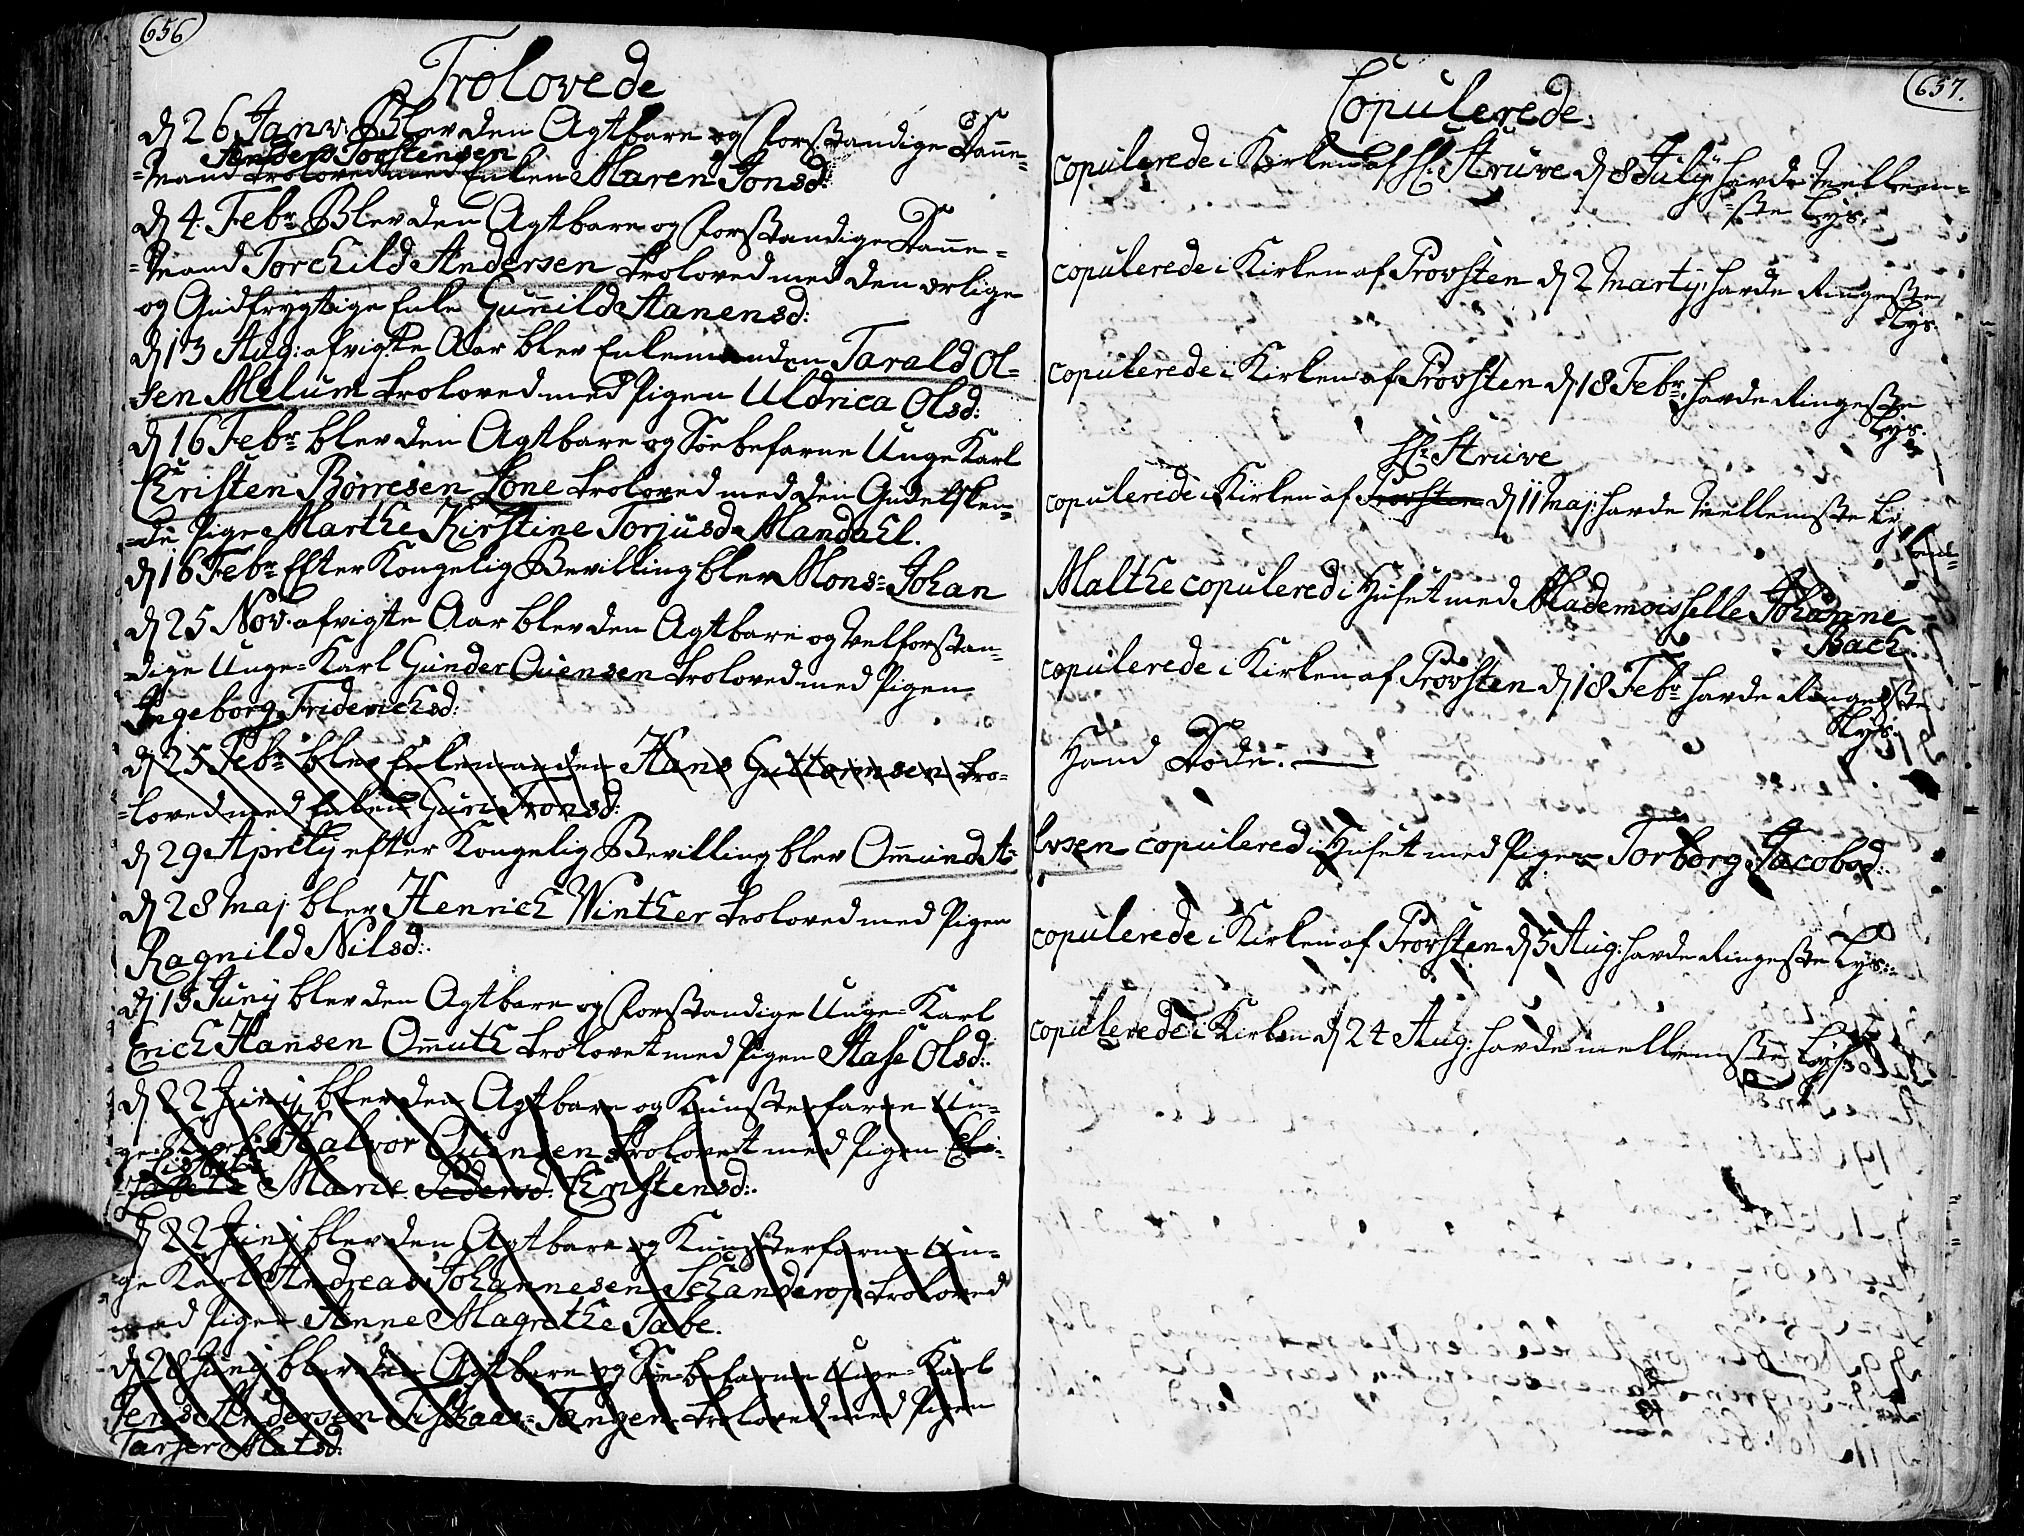 656
Trolovede
d 26 Janv: Blev den Agtbare og Forstandige Danne-
Anders Torstensen
=Mand troloved med Enken Maren Jonsd:
d 4. Febr Blev den Agtbare og Forstandige Danne=
=Mand Torchild Andersen troloved med den ærlige
og Gudfrygtige Enke Gunnild Hanensd:
d 13 Aug: afvigte Aar blev Enkemanden Tarald Ol=
sen Melum troloved med Pigen Uldrica Olsd:
d 16 Febr blev den Agtbare og Søebefarne Unge Karl
Christen Børresen Lone troloved med den Gudelsken=
=de Pige Marthe Kirstine Torjusd Mandahl.
d 16 Febr Efter Kongelig Bevilling blev Mons= Johan
d 25 Nov. afvigte Aar blev den Agtbare og Velforstan=
dige Unge=Karl Gunder Ouensen troloved med Pigen
Ingeborg Friderichsd:
d 25 Febr blev Enkemanden Hans Guttormsen tro=
=loved med Enken Guri Tronsd:
d 29 Aprily efter Kongelig Bevilling blev Omund A=
d 28 Maj blev Henrich Winther troloved med Pigen
Ragnild Nilsd:
d 15 Junij blev den Agtbare og Forstandige Unge=Karl
Erich Hansen Omuth trolovet med Pigen Aase Olsd:
d 22 Junij blev den Agtbare og Kunsterfarne Un=
ge=Karl Halvor Ouensen trolovet med Pigen Eli=
Lisbeth
=sabete Marie Pedersd. Christensd:
d 22 Junj blev den Agtbare og Kunsterfarne Un=
ge Karl Andreas Johannesen Schanderop troloved
med Pigen Anne Magrethe Tabe.
d 28 Junij blev den Agtbare og Søe=befarne Unge=Karl
Jens Andersen Tangen troloved med Pigen
Matsd:
657.
Copulerede.
copulerede i Kirken af Hr. Struve d 8 Julij, havde Mellem=
=ste Lys.
copulerede i Kirken af Provsten d 2 Martij, havde Ringeste
Lys.
copulerede i Kirken af Provsten d 18 Febr, havde Ringeste
Lys.
Hr. Struve
copulerede i Kirken af Provsten d 11 Maj: havde Mellemste Ly
Malthe copulered i Huset med Mademoisselle Johanne
Bach.
copulerede i Kirken af Provsten d 18 Febr havde Ringeste
Lys.
Hand Døde.
lvsen copulered i Huset med Pigen Torborg Jacobsd:
copulerede i Kirken af Provsten d 5 Aug: havde Ringeste Lys:
copulerede i Kirken d 24 Aug: havde mellemste Lys.